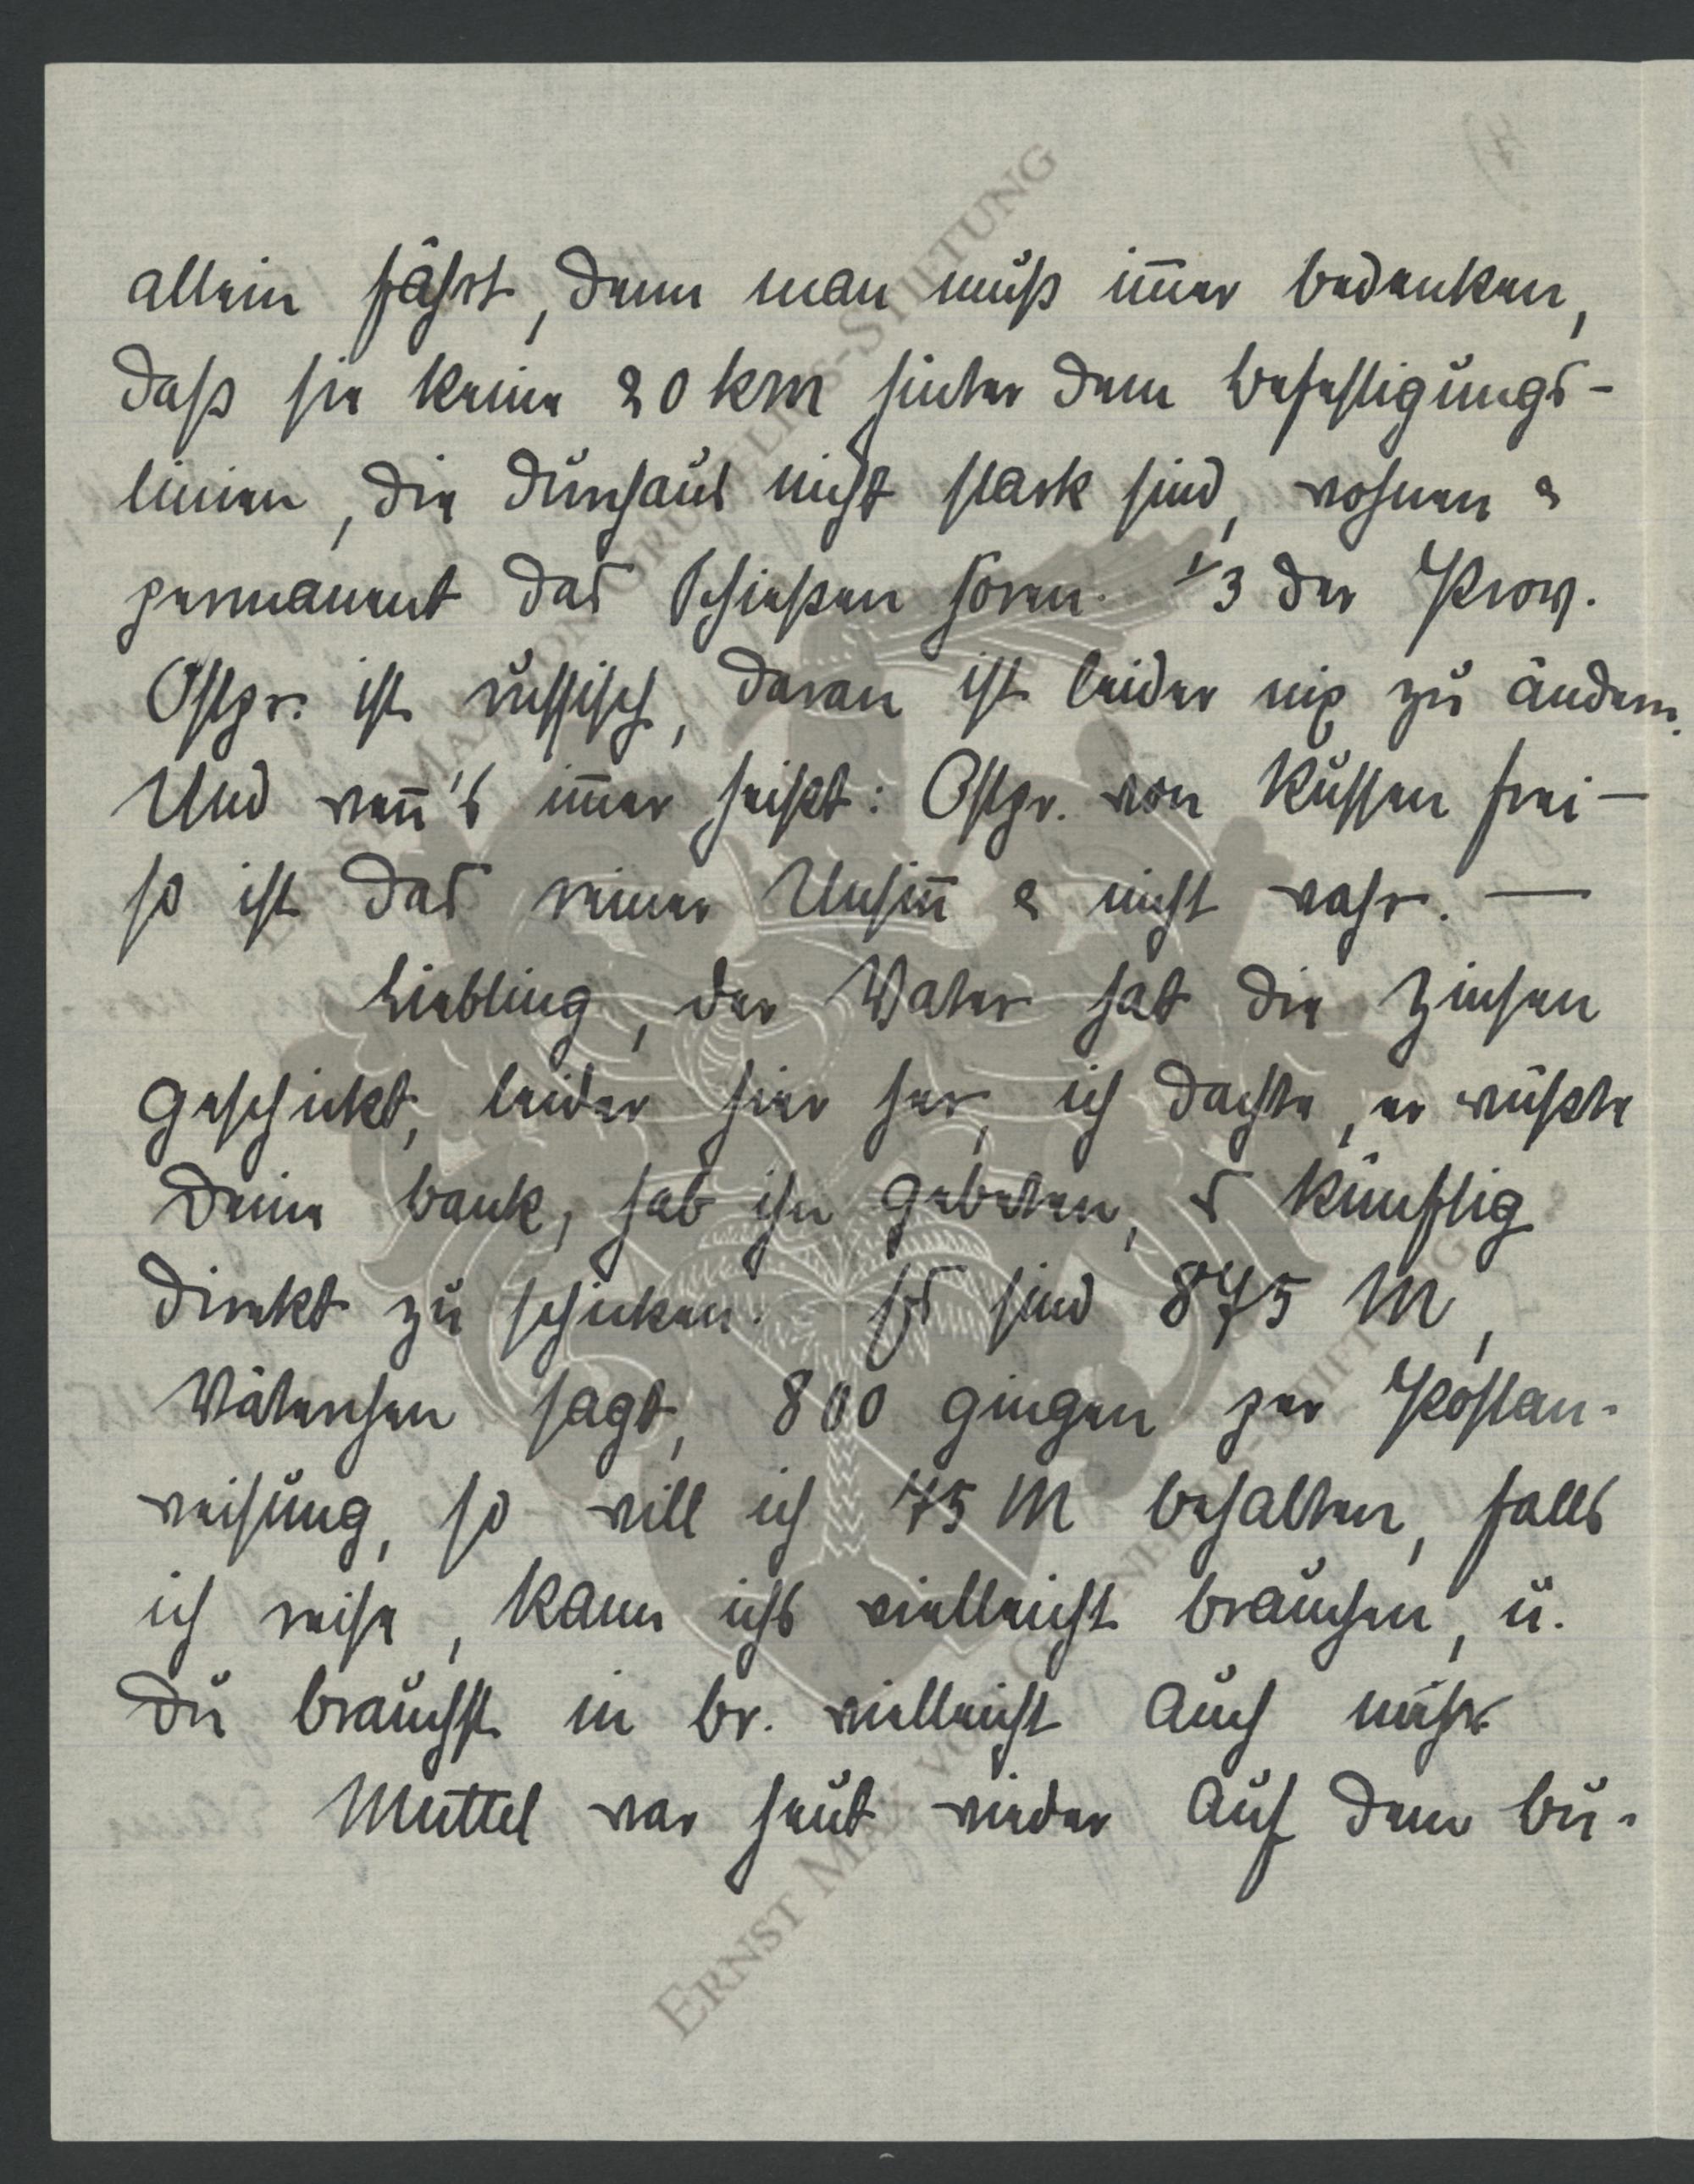 allein fährt, denn man muß im̅er bedenken,
daß sie keine 20 km hinter dem Befestigungs-
linien, die durchaus nicht stark sind, wohnen &
permanent das Schießen hören. 1/3 der Prov.
Ostpr. ist russisch, daran ist leider nix zu ändern.
Und wen̅'s im̅er heißt: Ostpr. von Russen frei -
so ist das reiner Unsin̅ & nicht wahr. —
Liebling, der Vater hat die Zinsen
geschickt, leider hier her, ich dachte, er wüßte
Deine Bank, hab ihn gebeten, s künftig
direkt zu schicken. Es sind 875 M,
Väterchen sagt, 800 gingen per Postan-
weisung, so will ich 75 M behalten, falls
ich reise, kann ichs vielleicht brauchen, u.
Du brauchst in Br. vielleicht auch mehr
Muttel war heut wieder auf dem Bü-
ERNST MAX VON GRUNELIUS-STIFTUNG
ERNST MAX VON GRUNELIUS-STIFTUNG